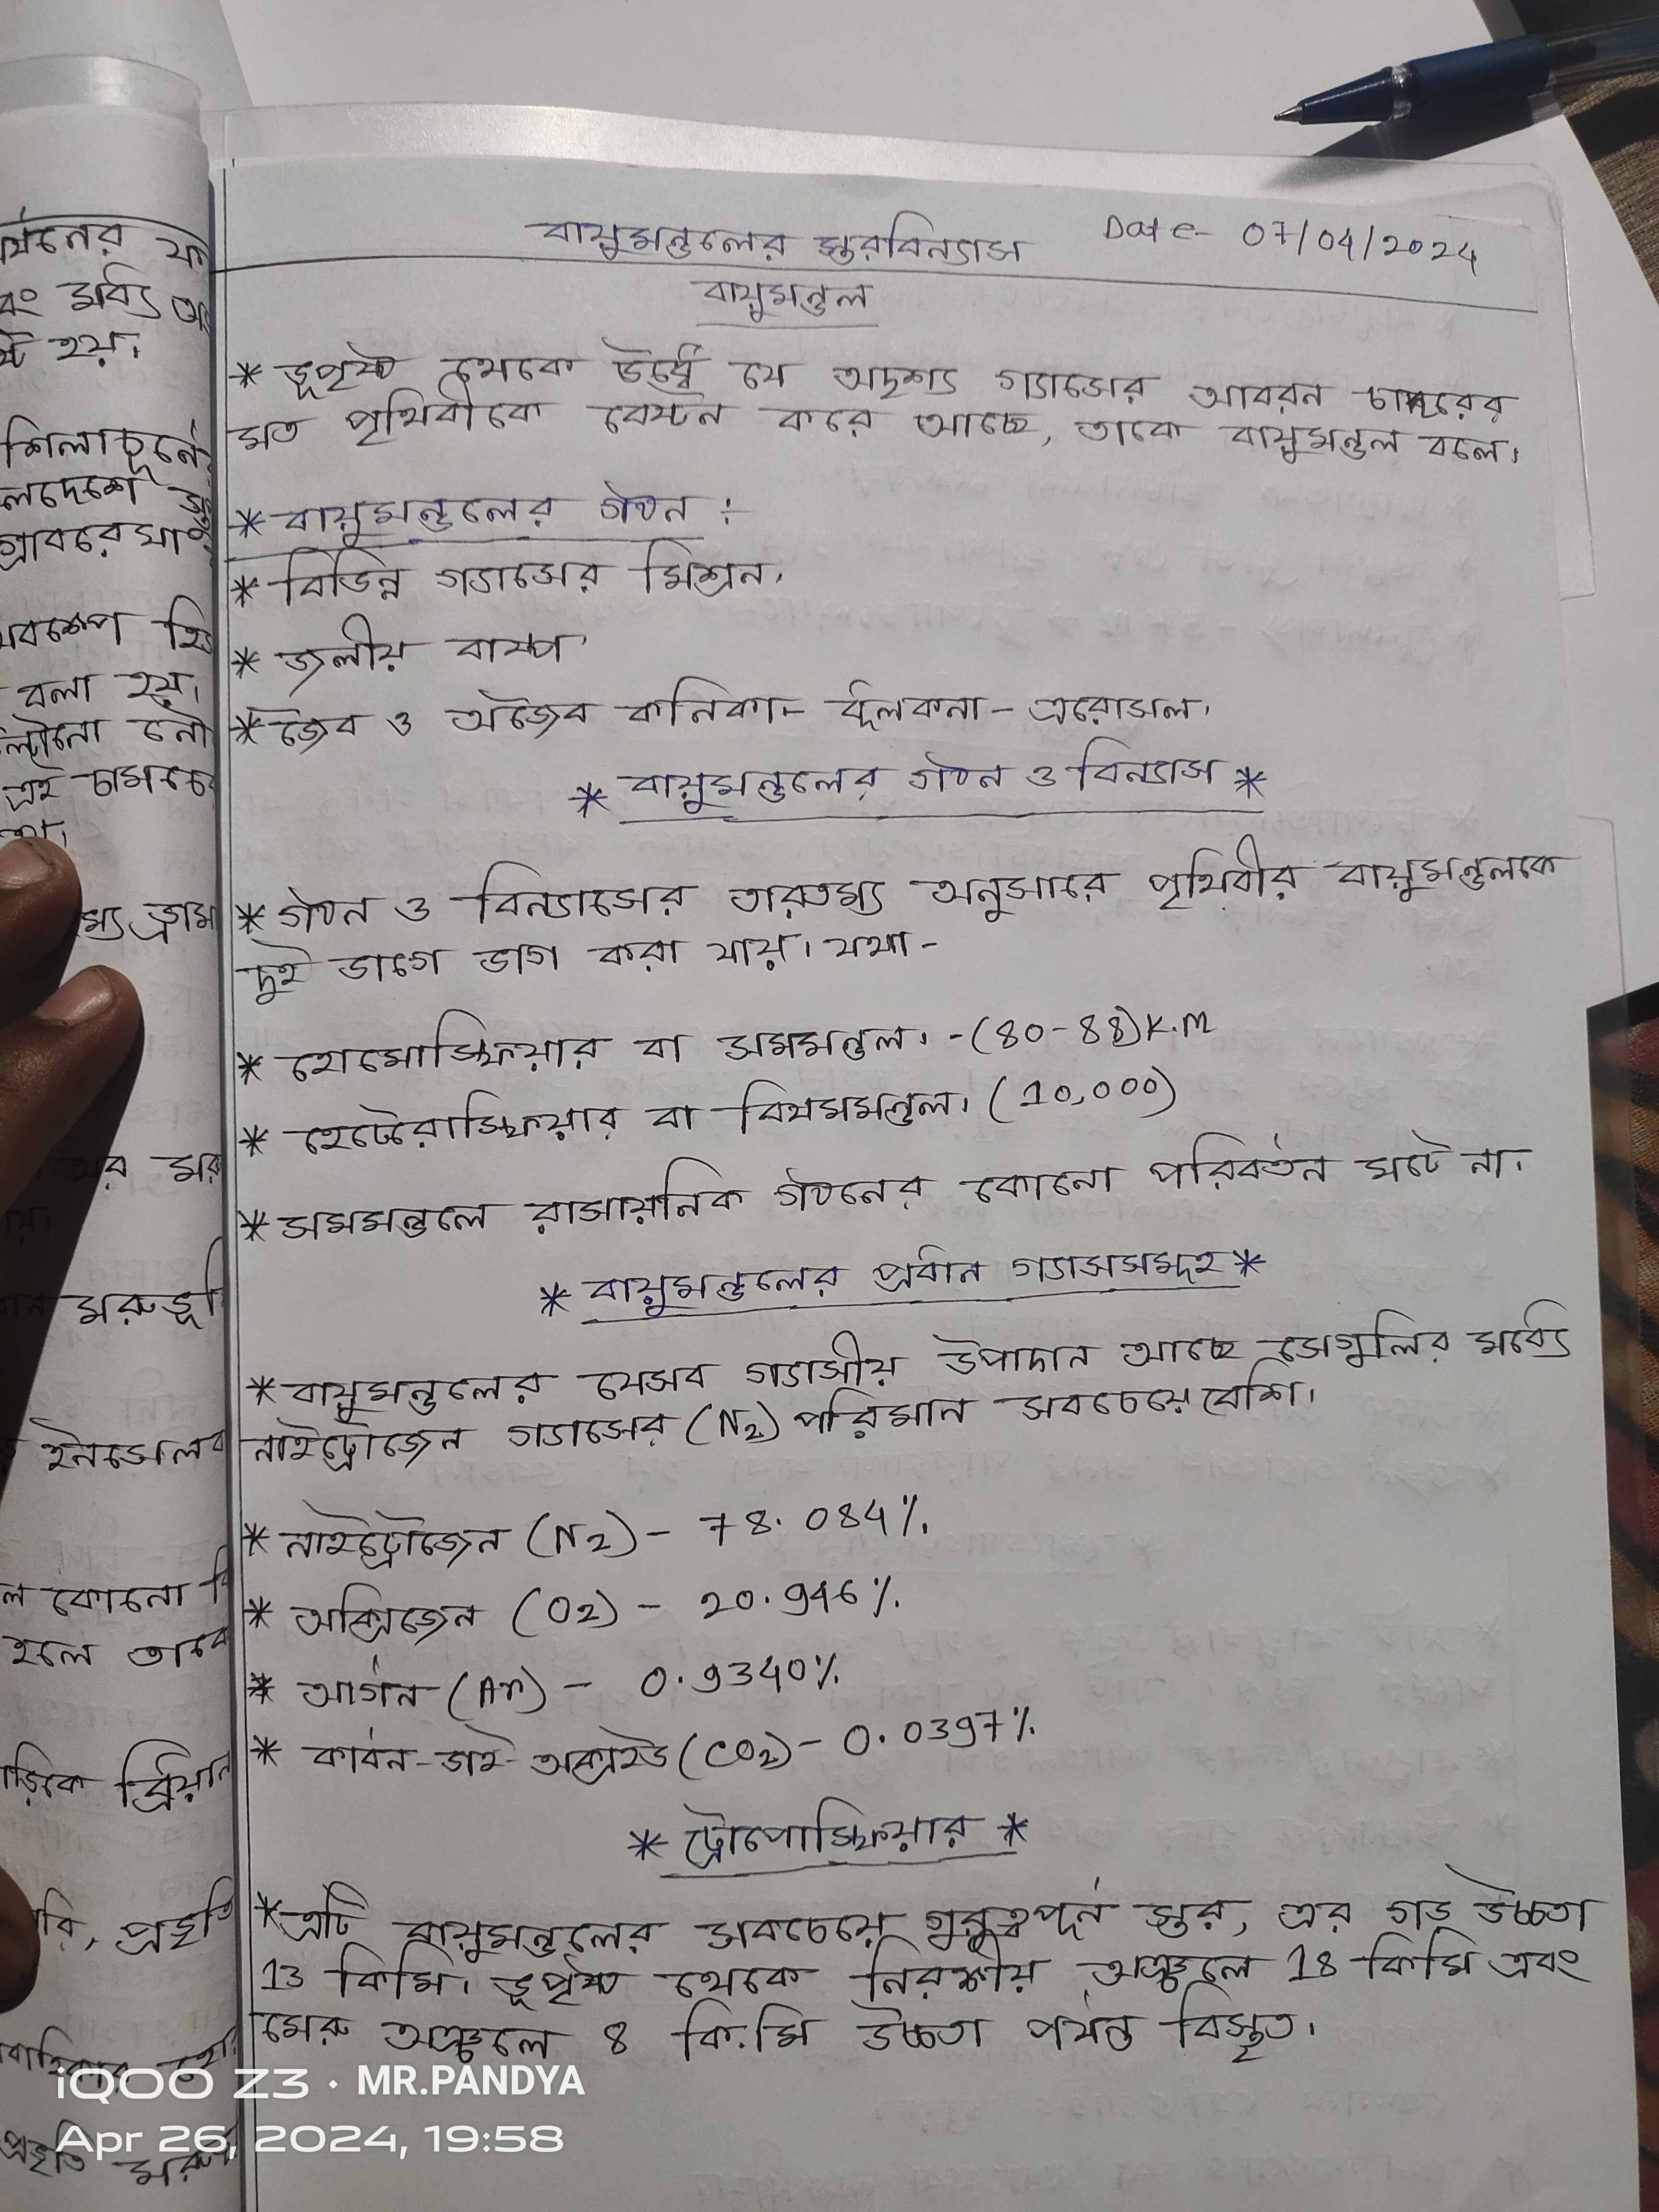 বায়ুমন্ডলের স্তরবিন্যাস Date- 07/04/2024
বায়ুমন্ডল
* ভূপৃষ্ঠ থেকে উর্দ্ধে যে অদৃশ্য গ্যাসের আবরন চাদরের
মত পৃথিবীকে বেষ্টন করে আছে, তাকে বায়ুমন্ডল বলে।
* বায়ুমন্ডলের গঠন :
* বিভিন্ন গ্যাসের মিশ্রন,
* জলীয় বাষ্প,
* জৈব ও অজৈব কনিকা- ধূলকনা - এরোসল।
* বায়ুমন্ডলের গঠন ও বিন্যাস *
* গঠন ও বিন্যাসের তারতম্য অনুসারে পৃথিবীর বায়ুমন্ডলকে
দুই ভাগে ভাগ করা যায়। যথা -
* হোমোস্ফিয়ার বা সমমন্ডল। -(80-88)K.M
* হেটেরোস্ফিয়ার বা বিষমমন্ডল। (10,000)
* সমমন্ডলে রাসায়নিক গঠনের কোনো পরিবর্তন ঘটে না।
* বায়ুমন্ডলের প্রধান গ্যাসসমূহ *
* বায়ুমন্ডলের যেসব গ্যাসীয় উপাদান আছে সেগুলির মধ্যে
নাইট্রোজেন গ্যাসের (N2) পরিমান সবচেয়ে বেশি।
* নাইট্রোজেন (N2) - 78.084%.
* অক্সিজেন (O2) - 20.946%.
* আর্গন (Ar) - 0.9340%.
* কার্বন-ডাই-অক্সাইড (CO2) - 0.0397%.
* ট্রোপোস্ফিয়ার *
* এটি বায়ুমন্ডলের সবচেয়ে গুরুত্বপূর্ন স্তর, এর গড় উচ্চতা
13 কিমি। ভূপৃষ্ঠ থেকে নিরক্ষীয় অঞ্চলে 18 কিমি এবং
মেরু অঞ্চলে 8 কি.মি উচ্চতা পর্যন্ত বিস্তৃত।
iQOO Z3 · MR.PANDYA
Apr 26, 2024, 19:58